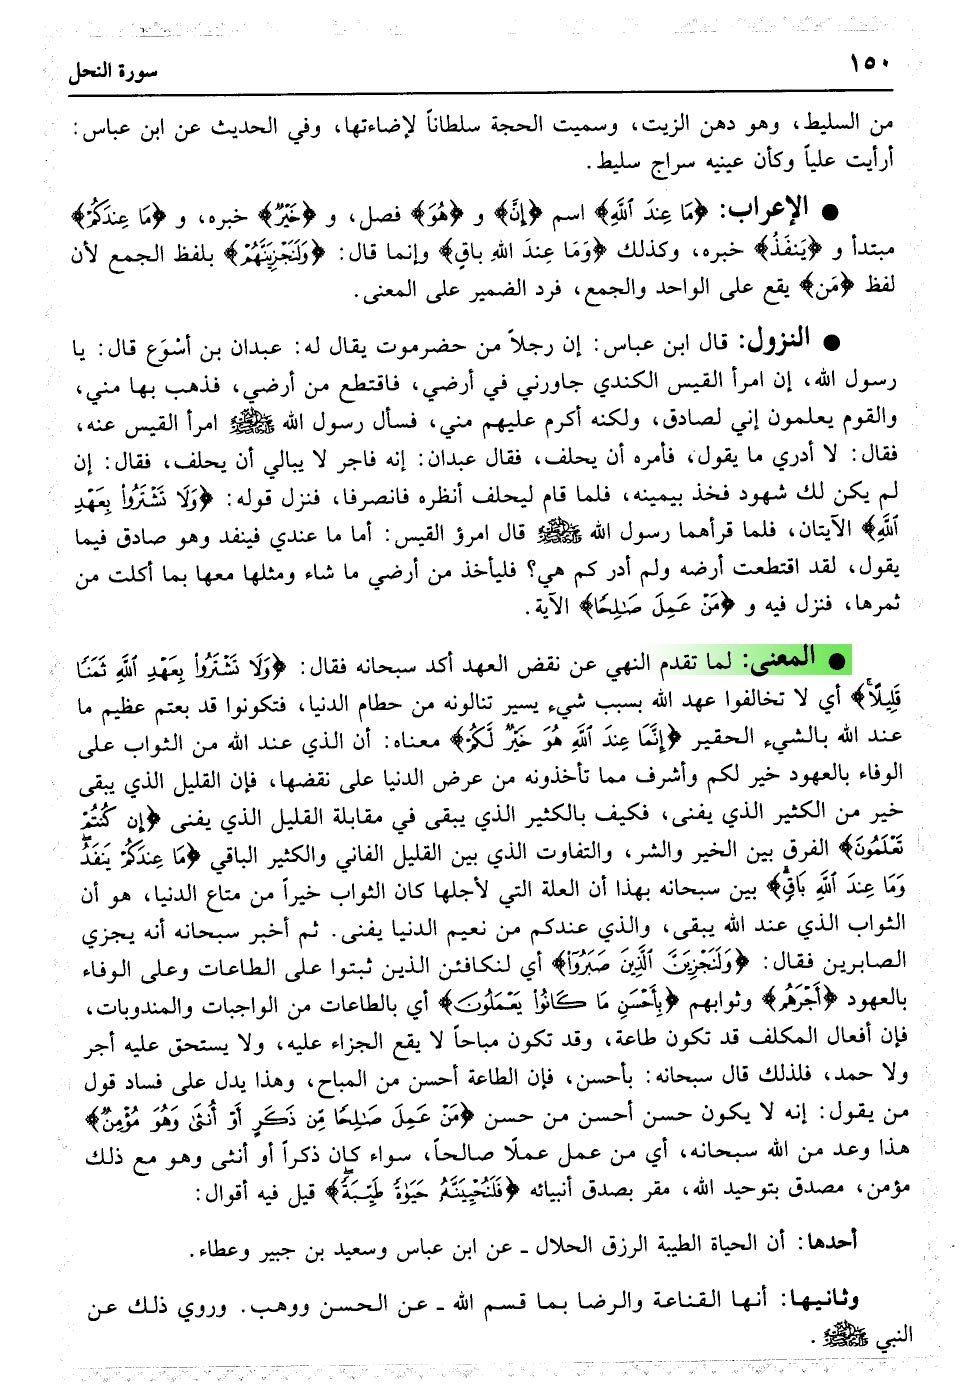 ١٥٠
سورة النحل
من السليط، وهو دهن الزيت، وسميت الحجة سلطاناً لإضاءتها، وفي الحديث عن ابن عباس:
أرأيت علياً وكأن عينيه سراج سليط.
● الإعراب: ﴿مَا عِندَ ٱللَّهِ﴾ اسم ﴿إِنَّ﴾ و ﴿هُوَ﴾ فصل، و ﴿خَيْرٌ﴾ خبره، و ﴿مَا عِندَكُمْ﴾
مبتدأ و ﴿يَنفَدُ﴾ خبره، وكذلك ﴿وَمَا عِندَ اللهِ باقٍ﴾ وإنما قال: ﴿وَلَنَجْزِيَنَّهُمْ﴾ بلفظ الجمع لأن
لفظ ﴿مَن﴾ يقع على الواحد والجمع، فرد الضمير على المعنى.
● النزول: قال ابن عباس: إن رجلاً من حضرموت يقال له: عبدان بن أسْوَع قال: يا
رسول الله، إن امرأ القيس الكندي جاورني في أرضي، فاقتطع من أرضي، فذهب بها مني،
والقوم يعلمون إني لصادق، ولكنه أكرم عليهم مني، فسأل رسول الله ﷺ امرأ القيس عنه،
فقال: لا أدري ما يقول، فأمره أن يحلف، فقال عبدان: إنه فاجر لا يبالي أن يحلف، فقال: إن
لم يكن لك شهود فخذ بيمينه، فلما قام ليحلف أنظره فانصرفا، فنزل قوله: ﴿وَلَا تَشْتَرُوا۟ بِعَهْدِ
ٱللَّهِ﴾ الآيتان، فلما قرأهما رسول الله ﷺ قال امرؤ القيس: أما ما عندي فينفد وهو صادق فيما
يقول، لقد اقتطعت أرضه ولم أدر كم هي؟ فليأخذ من أرضي ما شاء ومثلها معها بما أكلت من
ثمرها، فنزل فيه و ﴿مَنْ عَمِلَ صَٰلِحًا﴾ الآية.
● المعنى: لما تقدم النهي عن نقض العهد أكد سبحانه فقال: ﴿وَلَا تَشْتَرُوا۟ بِعَهْدِ ٱللَّهِ ثَمَنًا
قَلِيلًا﴾ أي لا تخالفوا عهد الله بسبب شيء يسير تنالونه من حطام الدنيا، فتكونوا قد بعتم عظيم ما
عند الله بالشيء الحقير ﴿إِنَّمَا عِندَ ٱللَّهِ هُوَ خَيْرٌ لَّكُمْ﴾ معناه: أن الذي عند الله من الثواب على
الوفاء بالعهود خير لكم وأشرف مما تأخذونه من عرض الدنيا على نقضها، فإن القليل الذي يبقى
خير من الكثير الذي يفنى، فكيف بالكثير الذي يبقى في مقابلة القليل الذي يفنى ﴿إِن كُنتُمْ
تَعْلَمُونَ﴾ الفرق بين الخير والشر، والتفاوت الذي بين القليل الفاني والكثير الباقي ﴿مَا عِندَكُمْ يَنفَدُ
وَمَا عِندَ ٱللَّهِ بَاقٍ﴾ بين سبحانه بهذا أن العلة التي لأجلها كان الثواب خيراً من متاع الدنيا، هو أن
الثواب الذي عند الله يبقى، والذي عندكم من نعيم الدنيا يفنى. ثم أخبر سبحانه أنه يجزي
الصابرين فقال: ﴿وَلَنَجْزِيَنَّ ٱلَّذِينَ صَبَرُوٓا۟﴾ أي لنكافئن الذين ثبتوا على الطاعات وعلى الوفاء
بالعهود ﴿أَجْرَهُم﴾ وثوابهم ﴿بِأَحْسَنِ مَا كَانُوا۟ يَعْمَلُونَ﴾ أي بالطاعات من الواجبات والمندوبات،
فإن أفعال المكلف قد تكون طاعة، وقد تكون مباحاً لا يقع الجزاء عليه، ولا يستحق عليه أجر
ولا حمد، فلذلك قال سبحانه: بأحسن، فإن الطاعة أحسن من المباح، وهذا يدل على فساد قول
من يقول: إنه لا يكون حسن أحسن من حسن ﴿مَنْ عَمِلَ صَٰلِحًا مِّن ذَكَرٍ أَوْ أُنثَىٰ وَهُوَ مُؤْمِنٌ﴾
هذا وعد من الله سبحانه، أي من عمل عملًا صالحاً، سواء كان ذكراً أو أنثى وهو مع ذلك
مؤمن، مصدق بتوحيد الله، مقر بصدق أنبيائه ﴿فَلَنُحْيِيَنَّهُۥ حَيَوٰةً طَيِّبَةً﴾ قيل فيه أقوال:
أحدها: أن الحياة الطيبة الرزق الحلال ـ عن ابن عباس وسعيد بن جبير وعطاء.
وثانيها: أنها القناعة والرضا بما قسم الله ـ عن الحسن ووهب. وروي ذلك عن
النبي ﷺ.